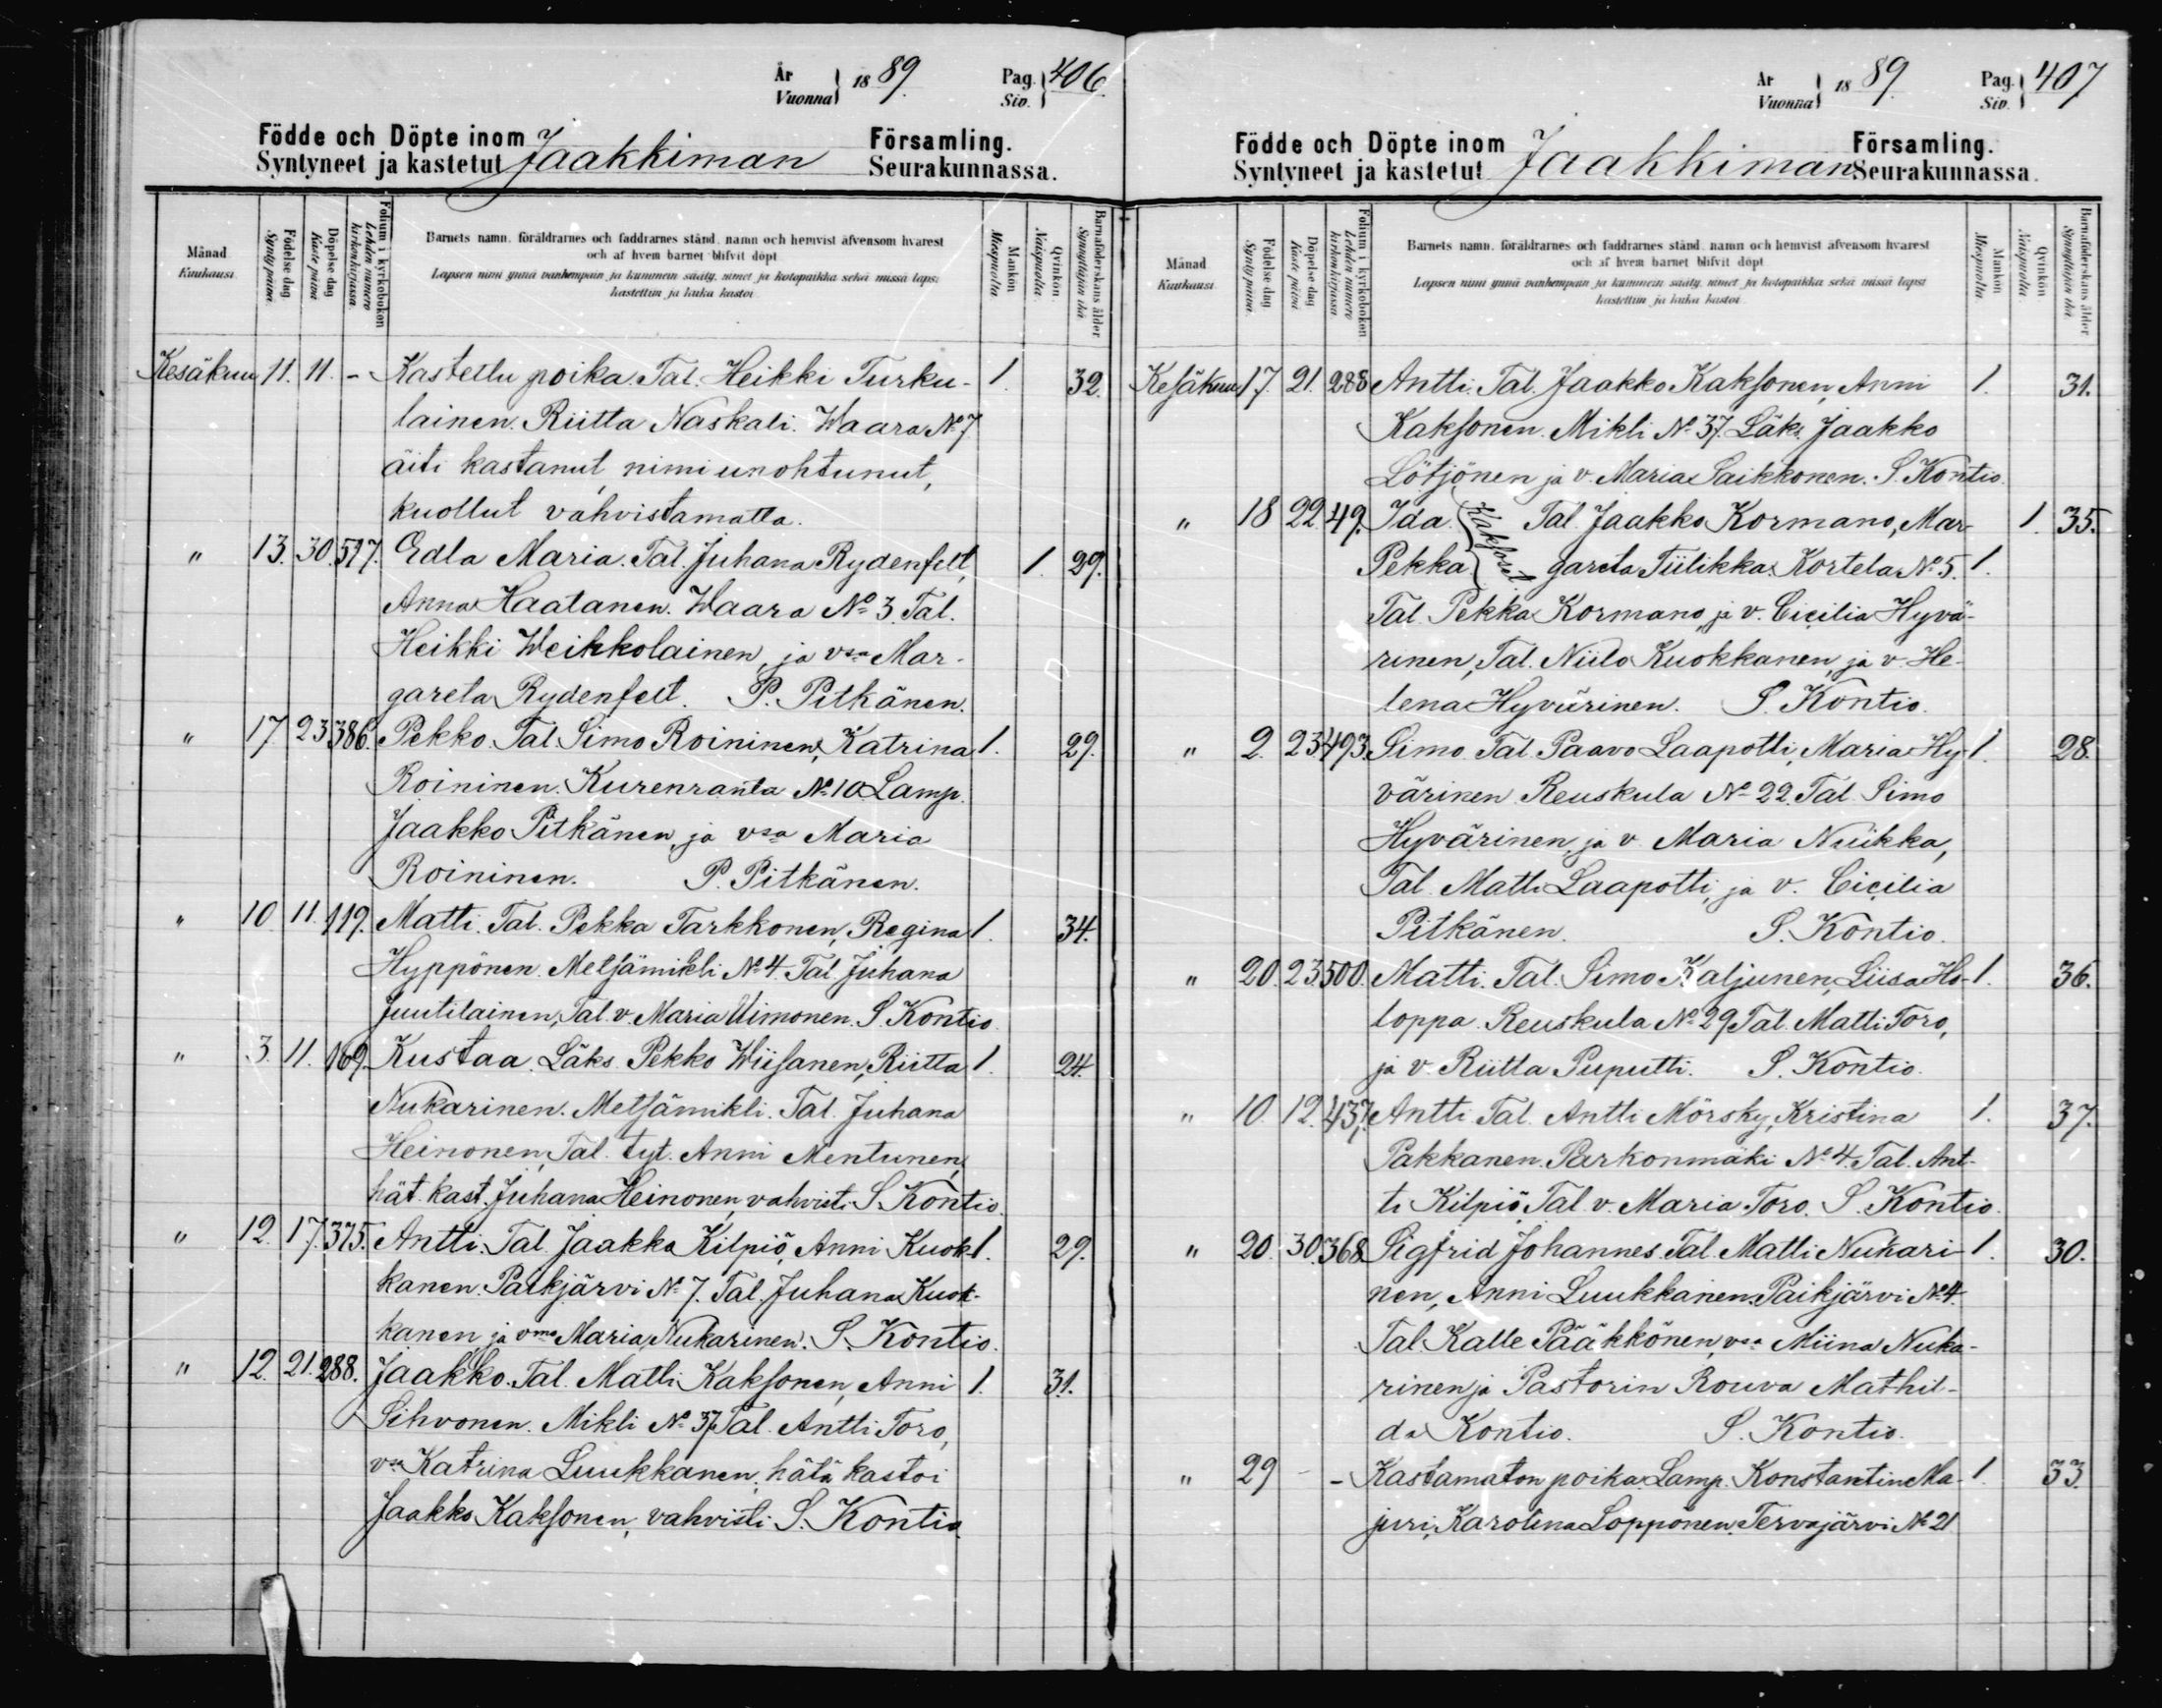 År
Vuonna } 1889.
Pag.
Siv. } 406.
Födde och Döpte inom Jaakkiman Församling.
Syntyneet ja kastetut Seurakunnassa.
Månad
Kuukausi.
Födelse dag
Synty päivä.
Döpelse dag
Kaste päivä
Folium i kyrkoboken
Lehden numero
kirkonkirjassa.
Barnets namn, föräldrarnes och faddrarnes stånd, namn och hemvist äfvensom hvarest
och af hvem barnet blifvit döpt
Lapsen nimi ynnä vanhempain ja kummein sääty, nimet ja kotopaikka sekä missä lapsi
kastettiin ja kuka kastoi
Mankön
Miespuolta
Qvinkön
Naispuolta.
Barnaföderskans ålder
Synnyttäjän ikä.
Kesäkuu 11. 11. - Kastettu poika. Tal. Heikki Turku- 1. 32.
lainen. Riitta Naskali. Waara No 7
äiti kastanut, nimi unohtunut,
kuollut vahvistamatta.
" 13. 30. 517. Edla Maria. Tal. Juhana Rydenfelt, 1. 29.
Anna Haatanen. Waara No 3. Tal.
Heikki Weikkolainen, ja vsa Mar-
gareta Rydenfelt. P. Pitkänen.
" 17 23 386. Pekko. Tal. Simo Roininen, Katrina 1. 29.
Roininen. Kurenranta No 10. Lamp.
Jaakko Pitkänen, ja vsa Maria
Roininen. P. Pitkänen.
" 10 11. 119. Matti. Tal. Pekka Tarkkonen, Regina 1. 34.
Hyppönen. Metsämikli No 4. Tal. Juhana
Juutilainen, Tal. v. Maria Uimonen. S. Kontio.
" 3. 11. 169. Kustaa. Läks. Pekko Wiisanen, Riitta 1. 24.
Nukarinen. Metsämikli. Tal. Juhana
Heinonen, Tal. tyt. Anni Mentunen,
hät. kast. Juhana Heinonen, vahvisti S. Kontio.
" 12. 17. 375. Antti. Tal. Jaakko Kilpiö, Anni Kuok- 1. 29.
kanen. Paikjärvi No 7. Tal. Juhana Kuok-
kanen ja vmo Maria Nukarinen. S. Kontio.
" 12. 21. 288. Jaakko. Tal. Matti Kaksonen, Anni 1. 31.
Sihvonen. Mikli No 37. Tal. Antti Toro,
vsa Katrina Luukkanen, hätä kastoi
Jaakko Kaksonen, vahvisti S. Kontio.
År
Vuonna } 1889.
Pag.
Siv. } 407
Födde och Döpte inom Jaakkiman Församling.
Syntyneet ja kastetut Seurakunnassa.
Månad
Kuukausi
Födelse dag
Synty päivä.
Döpelse dag
Kaste päivä
Folium i kyrkoboken
Lehden numero
kirkonkirjassa.
Barnets namn, föräldrarnes och faddrarnes stånd, namn och hemvist äfvensom hvarest
och af hvem barnet blifvit döpt
Lapsen nimi ynnä vanhempain ja kummein sääty, nimet ja kotopaikka sekä missä lapsi
kastettiin ja kuka kastoi
Mankön
Miespuolta
Qvinkön
Naispuolta.
Barnaföderskans ålder
Synnyttäjän ikä.
Kesäkuu 17. 21. 288 Antti. Tal. Jaakko Kaksonen, Anni 1. 31.
Kaksonen. Mikli No 37. Läks. Jaakko
Lötjönen ja v. Maria Saikkonen. S. Kontio.
" 18 22 49. Ida. } Kaksoset Tal. Jaakko Kormano, Mar- 1. 35.
Pekka } gareta Tiilikka. Kortela No 5. 1.
Tal. Pekka Kormano, ja v. Cicilia Hyvä-
rinen, Tal. Niilo Kuokkanen, ja v. He-
lena Hyvärinen. S. Kontio.
" 2. 23 493. Simo. Tal. Paavo Laapotti, Maria Hy- 1. 28.
värinen. Reuskula No 22. Tal. Simo
Hyvärinen, ja v. Maria Niikka,
Tal. Matti Laapotti, ja v. Cicilia
Pitkänen. S. Kontio.
" 20. 23. 500. Matti. Tal. Simo Kaljunen, Liisa Ho- 1. 36.
loppa. Reuskula No 29. Tal. Matti Toro,
ja v. Riitta Puputti. S. Kontio.
" 10. 12. 437. Antti. Tal. Antti Mörsky, Kristina 1. 37.
Pakkanen. Parkonmäki No 4. Tal. Ant-
ti Kilpiö, Tal. v. Maria Toro. S. Kontio.
" 20. 30. 368 Sigfrid Johannes. Tal. Matti Nukari- 1. 30.
nen, Anni Luukkanen. Paikjärvi No 4.
Tal. Kalle Pääkkönen, vsa Miina Nuka-
rinen ja Pastorin Rouva Mathil-
da Kontio. S. Kontio.
" 29 - - Kastamaton poika. Lamp. Konstantin Ma- 1. 33.
juri, Karolina Lopponen. Tervajärvi No 21